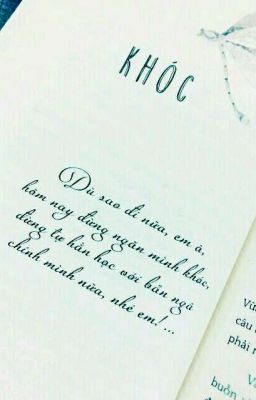 KHÓC
Dù sao đi nữa, em à,
hôm nay đừng ngăn mình khóc,
đừng tự hằn học với bản ngã
chính mình nữa, nhé em!...
Vù
câu
phải r
V
buồn